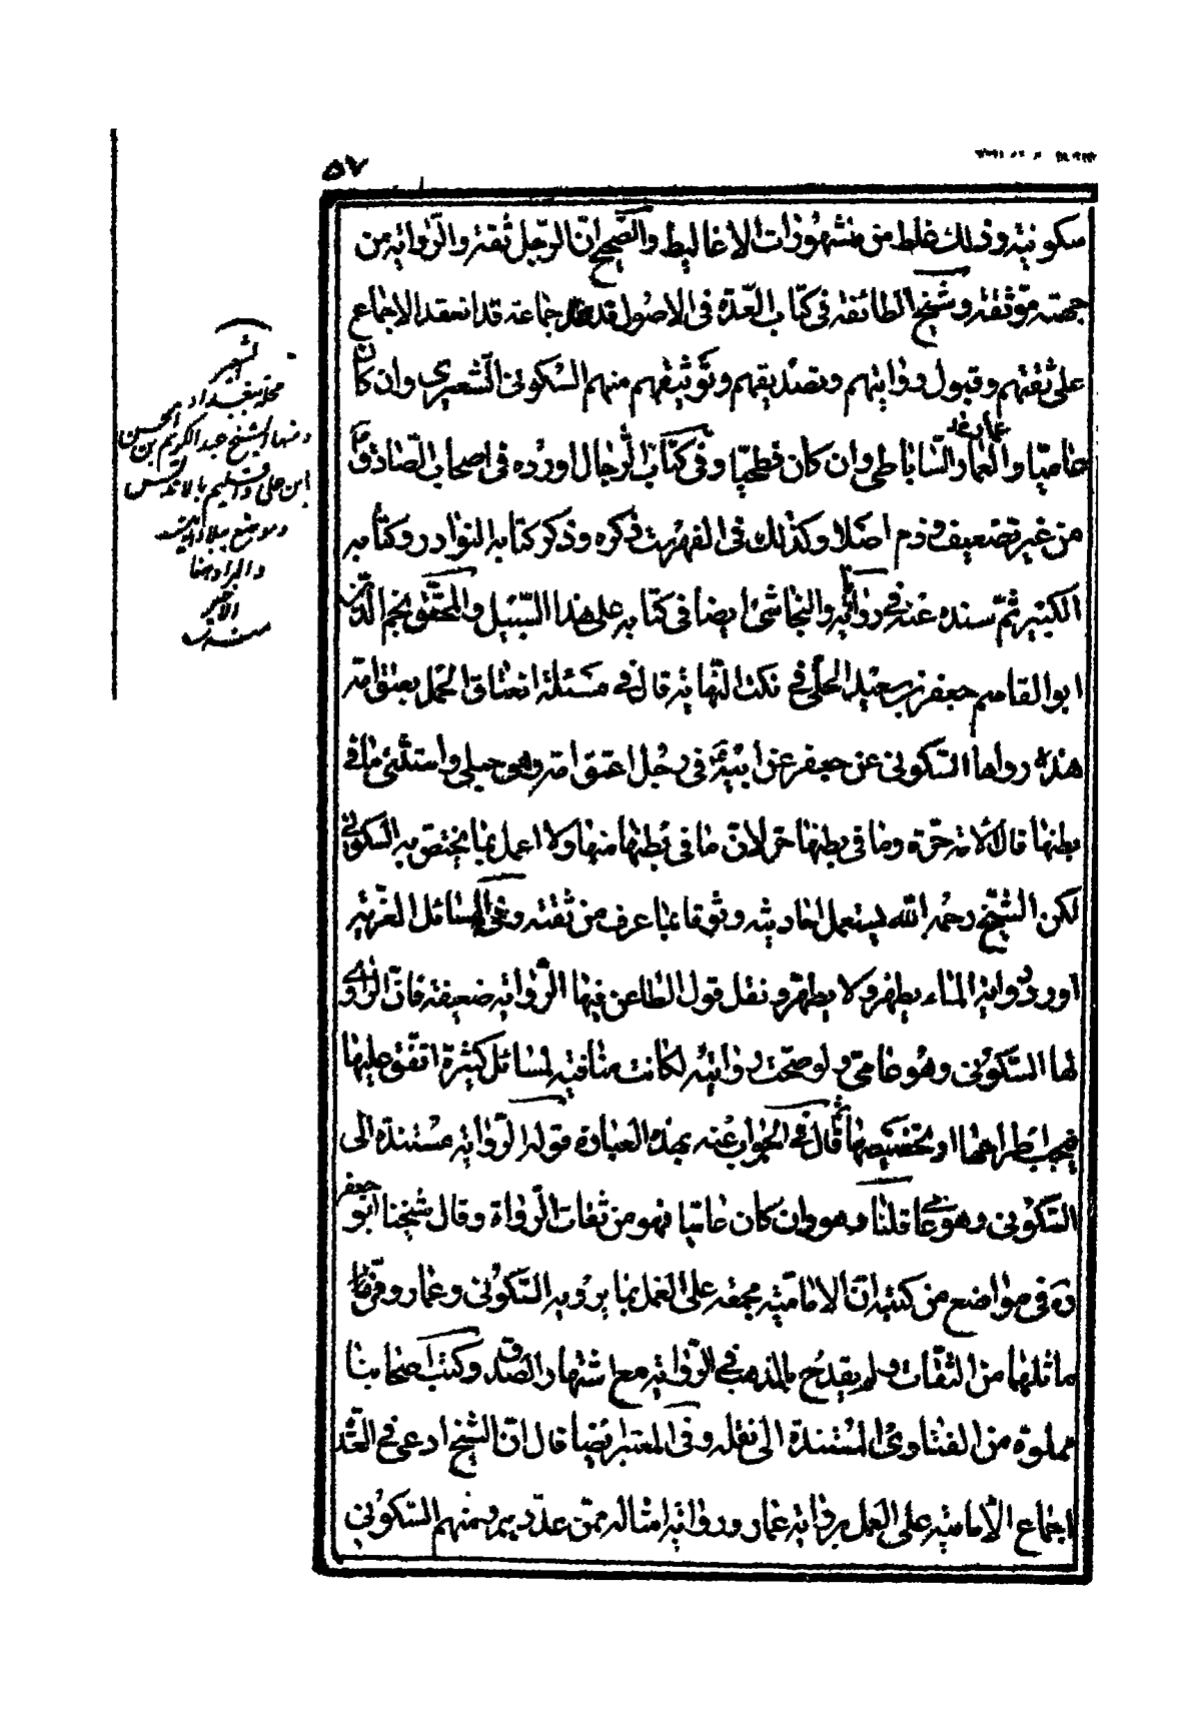 ٥٧
سكونية وذلك غلط من مشهورات الاغاليط والصحيح ان الرجل ثقة والرواية من
جهته موثقة وشيخ الطائفة فى كتاب العدة فى الاصول قد عد جماعة قد انعقد الاجماع
على ثقتهم وقبول روايتهم وتصديقهم وتوثيقهم منهم السكونى الشعيرى وان كان
عاميا والعمار الساباطى وان كان فطحيا وفى كتاب الرجال اورده فى اصحاب الصادق
من غير تضعيف وذم اصلا وكذلك فى الفهرست ذكره وذكر كتابه النوادر وكتابه
الكبير ثم سنده عنه فى روايته والنجاشى ايضا فى كتابه على هذا السبيل والمحقق نجم الدين
ابو القاسم جعفر بن سعيد الحلى فى نكت النهاية قال فى مسئلة انعتاق الحمل بعتق امه
هذه رواها السكونى عن جعفر عن ابيه فى رجل اعتق امة وهى حبلى واستثنى ما فى
بطنها قال الامة حرة وما فى بطنها حر لان ما فى بطنها منها ولا اعمل بما يختص به السكونى
لكن الشيخ رحمه الله يستعمل احاديثه وثوقا بما عرف من ثقته وفى المسائل الغرية
اورد رواية الماء يطهر ولا يطهر ونقل قول الطاعن فيها الرواية ضعيفة فان الراوى
لها السكونى وهو عامى ولو صحت روايته لكانت منافية لمسائل كثيرة اتفق عليها
فيجب اطراحها او تخصيصها ثم قال فى الجواب عنه بهذه العبارة قوله الرواية مستندة الى
السكونى وهو عامى قلنا وهو وان كان عاميا فهو من ثقات الرواة وقال شيخنا ابو جعفر
ره فى مواضع من كتبه ان الامامية مجمعة على العمل بما يرويه السكونى وعمار ومن
ماثلهما من الثقات ولم يقدح بالمذهب فى الرواية مع اشتهار الصدق وكتب اصحابنا
مملوة من الفتاوى المستندة الى نقله وفى المعتبر ايضا قال ان الشيخ ادعى فى العدة
اجماع الامامية على العمل برواية عمار ورواية امثاله ممن عددهم ومنهم السكونى
الشعير
محلة ببغداد
ومنها الشيخ عبد الكريم بن الحسن
ابن على واقليم بالاندلس
وموضع ببلاد